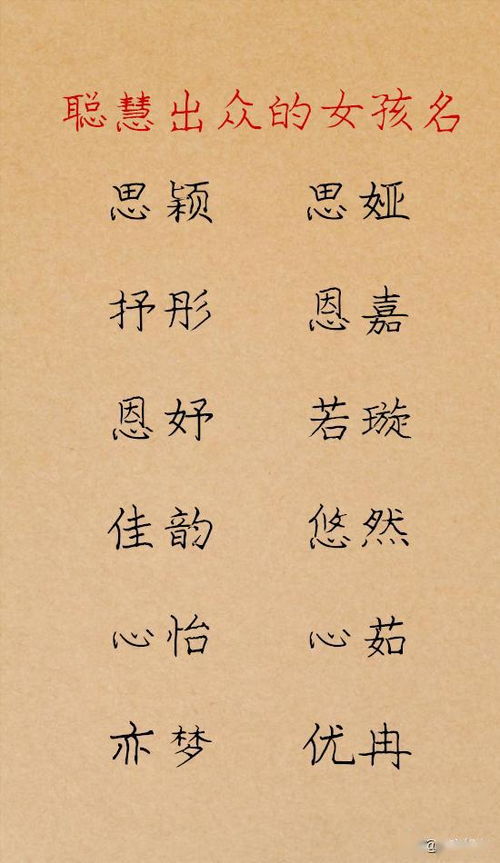 聪慧出众的女孩名
思颖 思娅
抒彤 恩嘉
恩妤 若璇
佳韵 悠然
心怡 心茹
亦梦 优冉